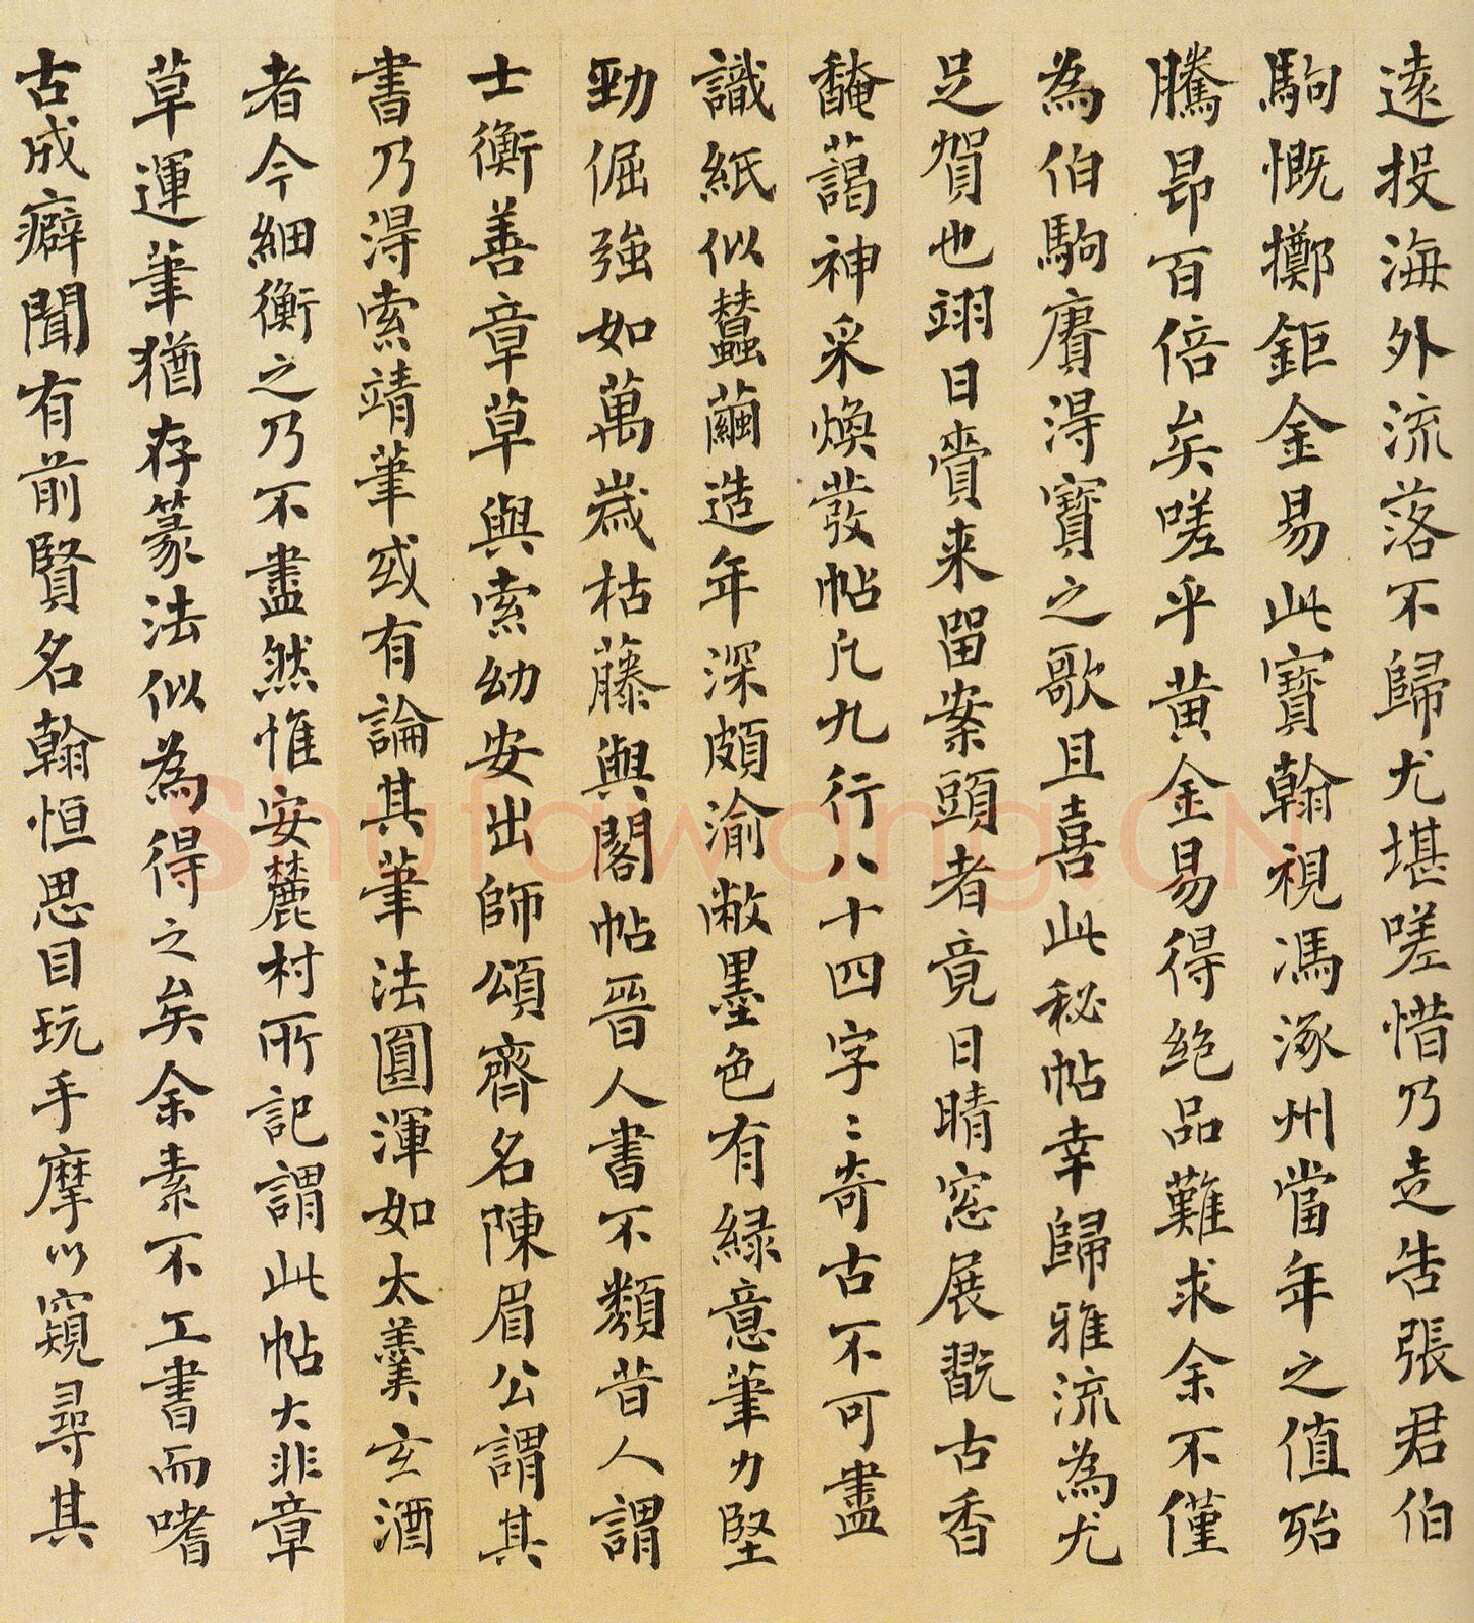 遠投海外流落不歸尤堪嗟惜乃走告張君伯
駒慨擲鉅金易此寶翰視馮涿州當年之值殆
騰昂百倍矣嗟乎黃金易得絕品難求余不僅
為伯駒賡得寶之歌且喜此秘帖幸歸雅流為尤
足賀也翊日賫来留案頭者竟日晴窓展翫古香
馣藹神采煥發帖凡九行八十四字〻奇古不可盡
識紙似蠶繭造年深頗渝敝墨色有緑意筆力堅
勁倔強如萬歲枯藤與閣帖晉人書不類昔人謂
士衡善章草與索幼安出師頌齊名陳眉公謂其
書乃得索靖筆或有論其筆法圓渾如太羹玄酒
者今細衡之乃不盡然惟安麓村所記謂此帖大非章
草運筆猶存篆法似為得之矣余素不工書而嗜
古成癖聞有前賢名翰恒思目玩手摩以窺尋其
Shufawang.CN